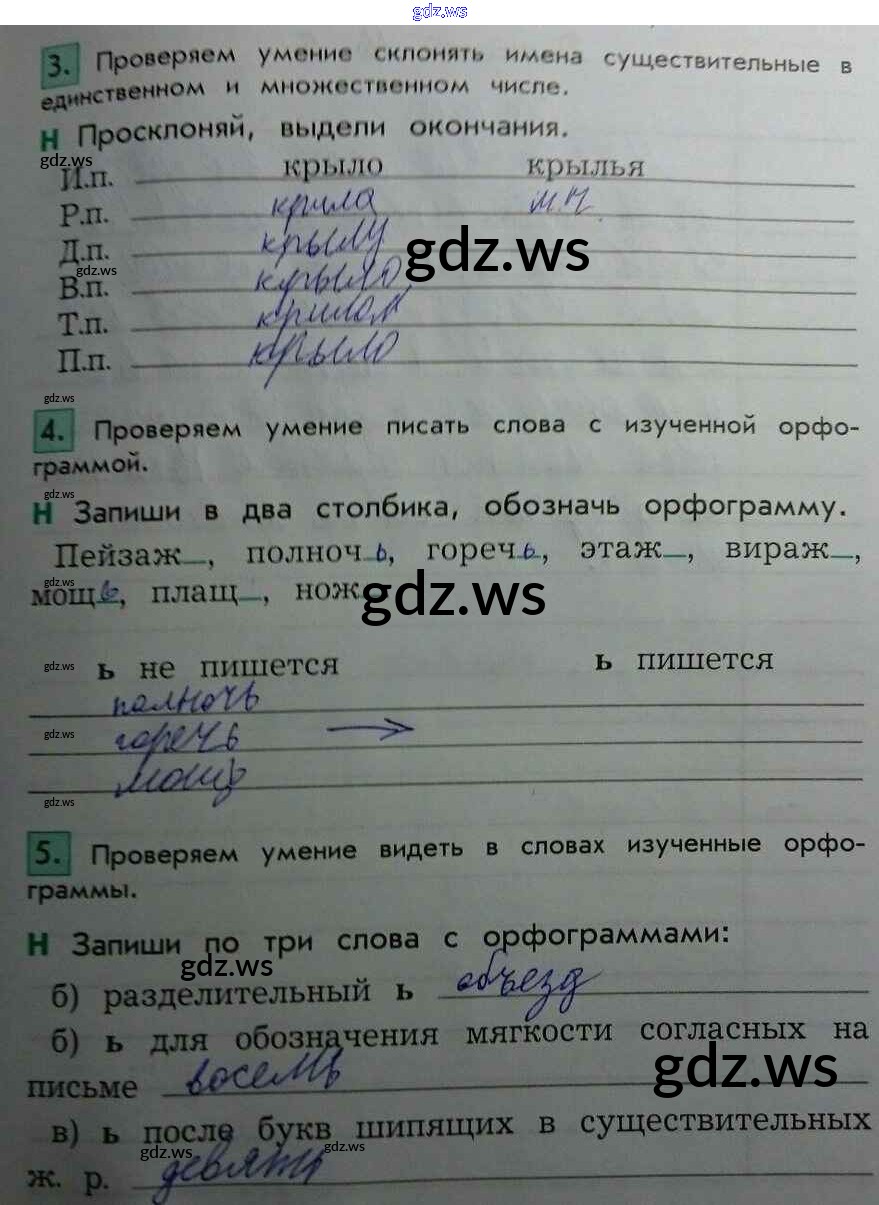 gdz.ws
3. Проверяем умение склонять имена существительные в
единственном и множественном числе.
Н Просклоняй, выдели окончания.
gdz.ws
И.п. крыло крылья
Р.п. крила м.н.
Д.п. крылу gdz.ws
gdz.ws
В.п. крыло
Т.п. крилом
П.п. крыло
gdz.ws
4. Проверяем умение писать слова с изученной орфо-
граммой.
gdz.ws
Н Запиши в два столбика, обозначь орфограмму.
Пейзаж_, полночь, горечь, этаж_, вираж_,
gdz.ws
мощь, плащ_, нож gdz.ws
gdz.ws ь не пишется ь пишется
полночь
gdz.ws
горечь →
мощь
gdz.ws
5. Проверяем умение видеть в словах изученные орфо-
граммы.
Н Запиши по три слова с орфограммами:
gdz.ws
б) разделительный ь объезд
б) ь для обозначения мягкости согласных на
gdz.ws
письме восемь
в) ь после букв шипящих в существительных
gdz.ws gdz.ws
ж. р. девять